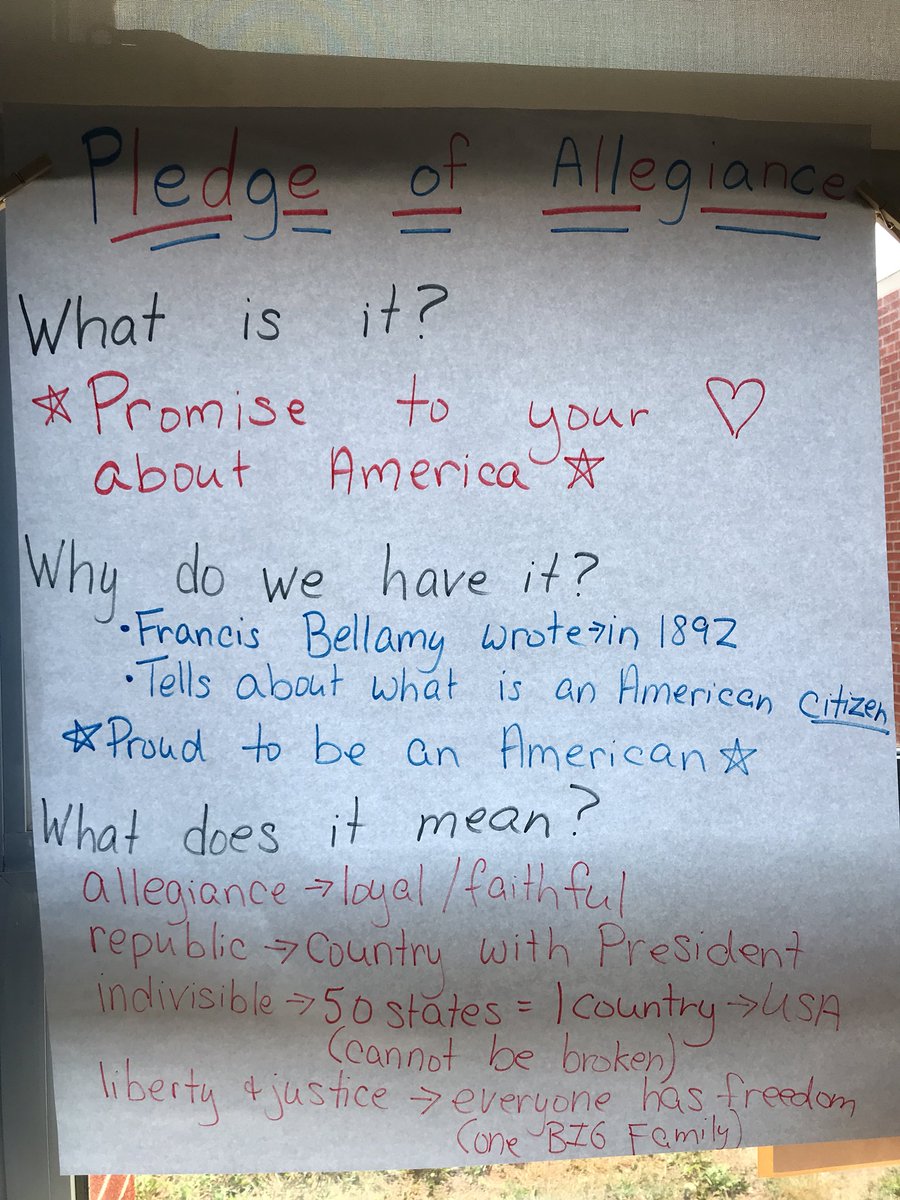 Pledge of Allegiance
What is it?
☆Promise to your ♡
about America☆
Why do we have it?
•Francis Bellamy wrote→in 1892
•Tells about what is an American citizen
☆Proud to be an American☆
What does it mean?
allegiance→loyal/faithful
republic→Country with President
indivisible→50 states = 1 country→USA
(cannot be broken)
liberty + justice → everyone has freedom
(one BIG Family)